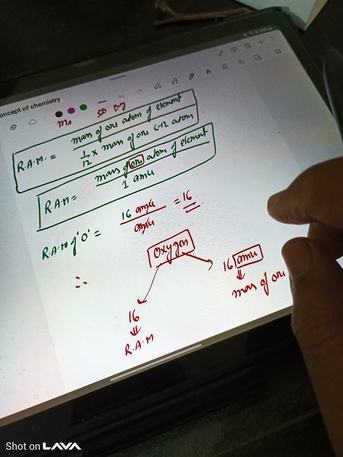 oncept of chemistry
R.A.M. = mass of one atom of element
1/12 × mass of one C-12 atom
RAM = mass of one atom of element
1 amu
R.A.M of 'O' = 16 amu / amu = 16
∴
Oxygen
16
R.A.M
16 amu
mass of one
Shot on LAVA